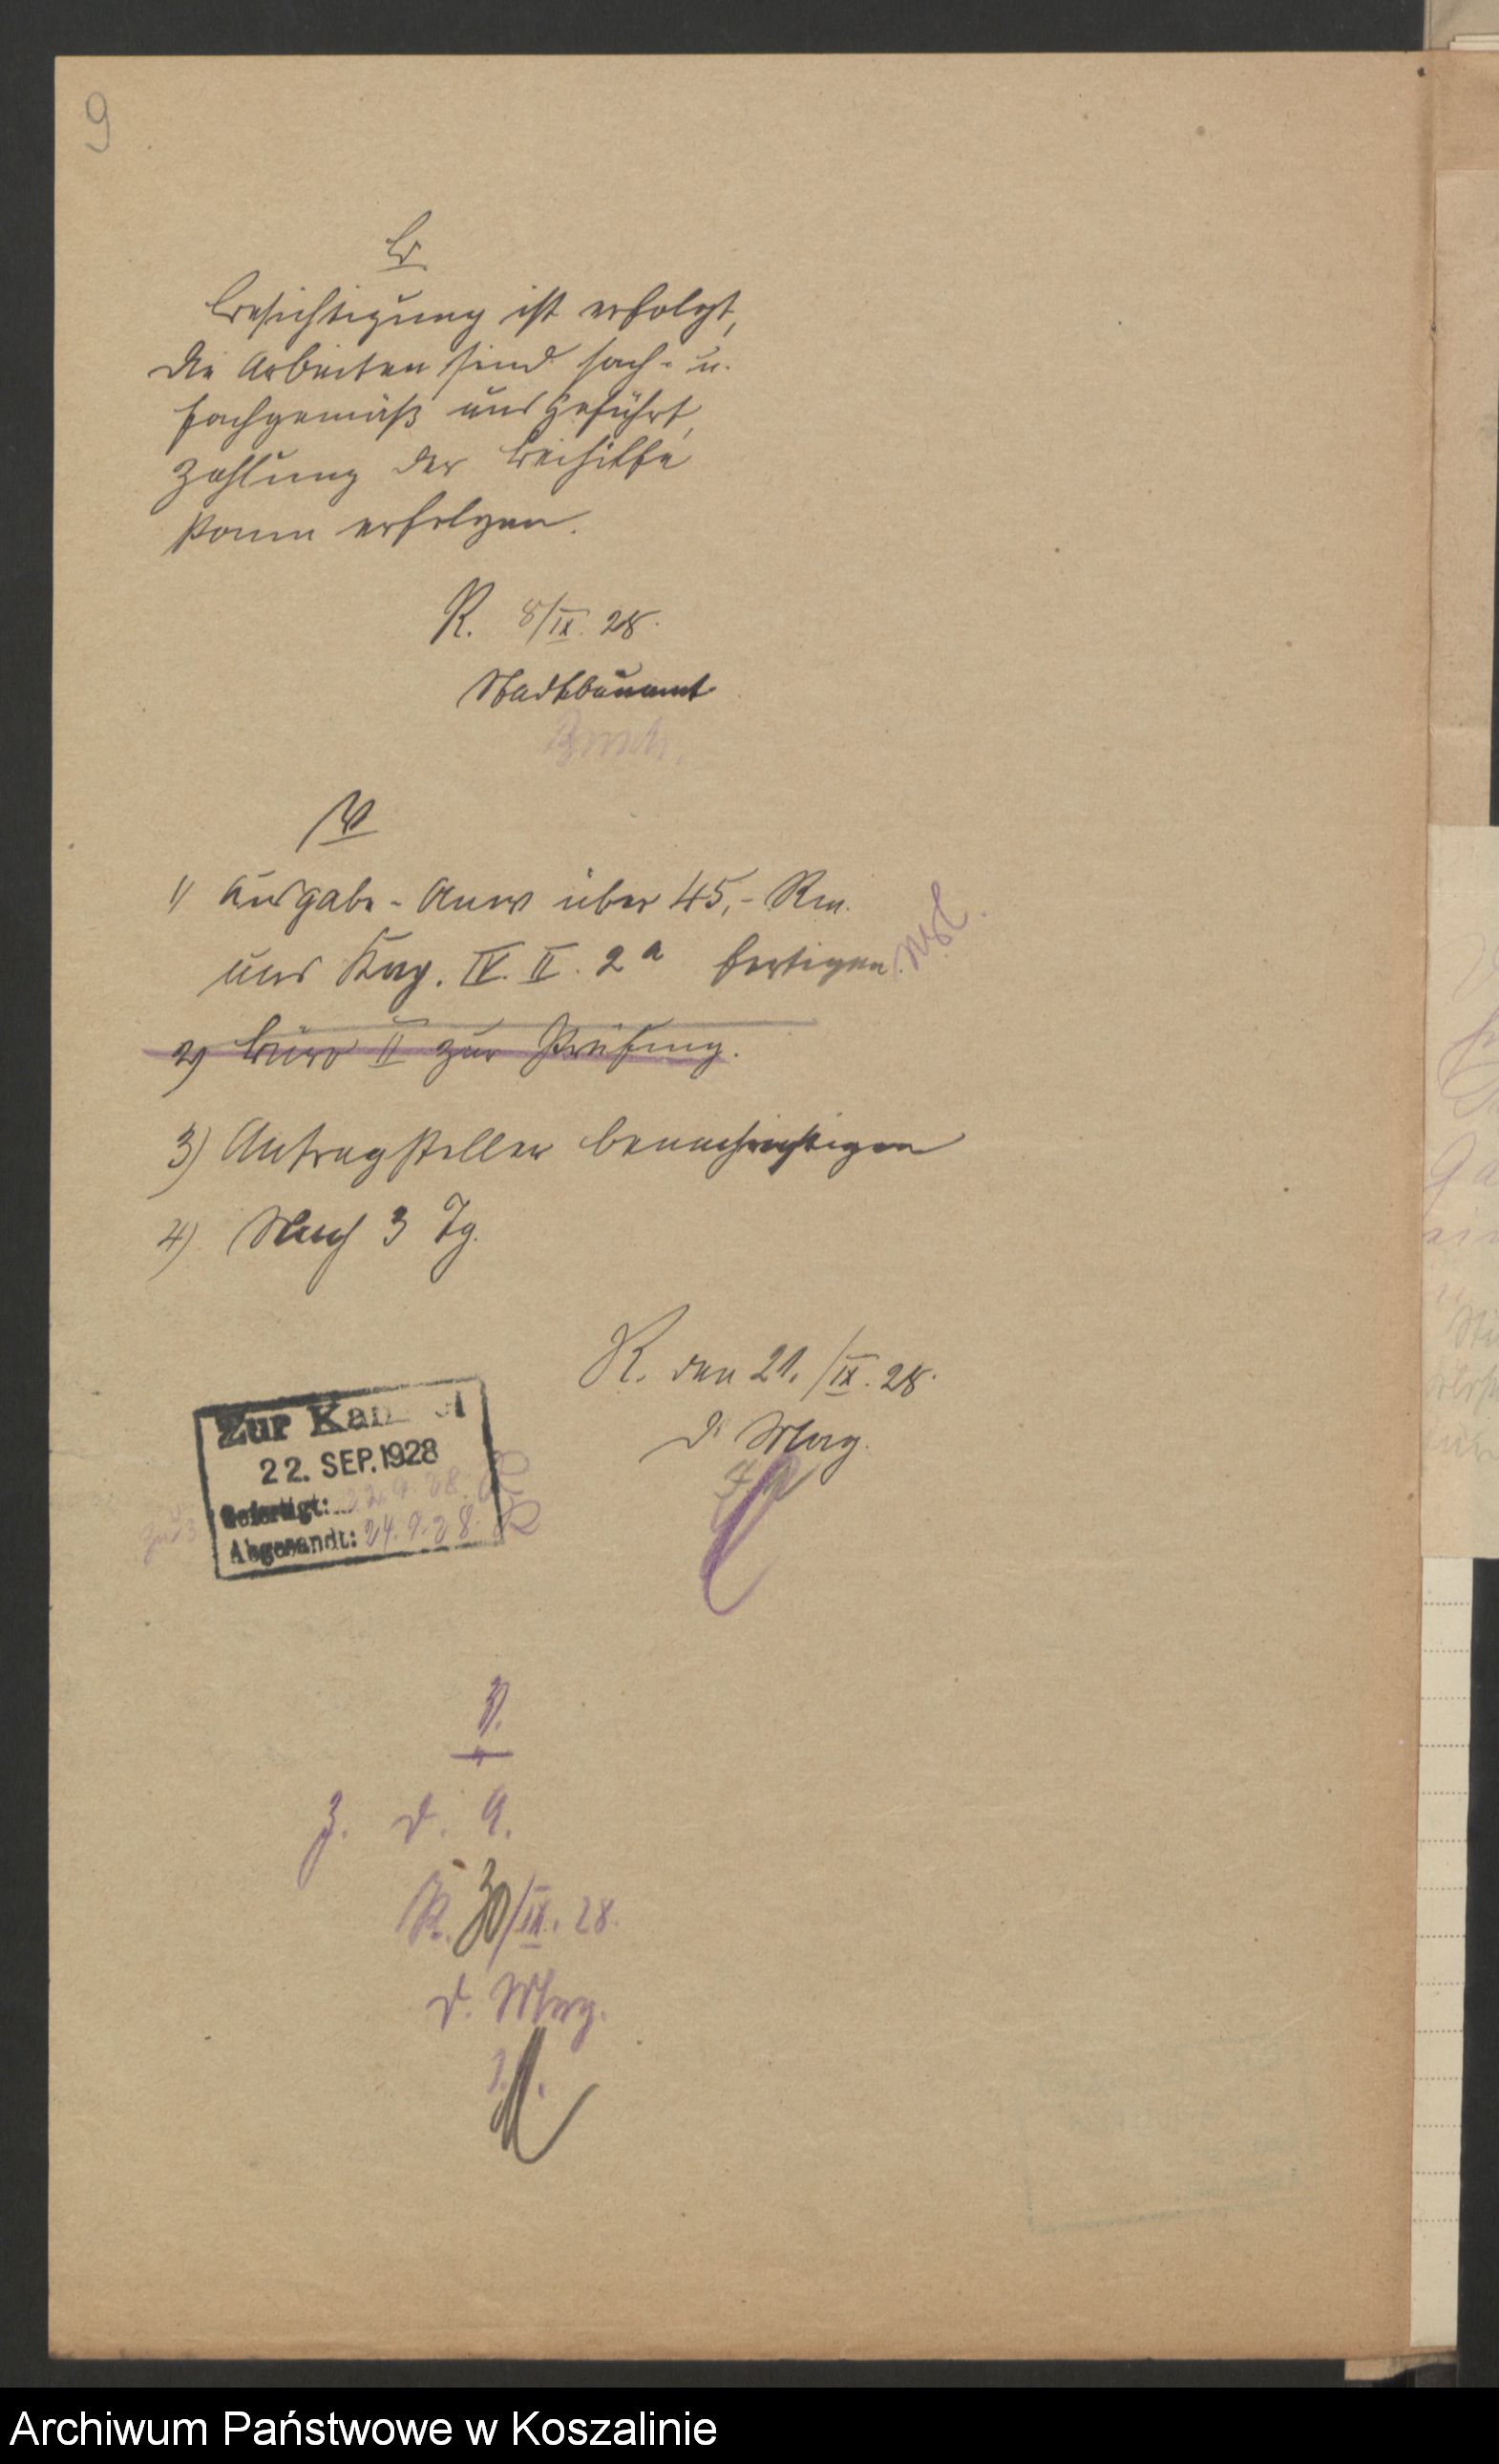 9
B
Besichtigung ist erfolgt,
die Arbeiten sind sach- u.
fachgemäß ausgeführt,
Zahlung der Beihilfe
kann erfolgen.
K. 8/IX. 28.
Stadtbauamt
V
1) Ausgabe-Anw über 45,- Rm.
aus Kap. IV. II. 2a fertigen.
2) Büro II zur Prüfung.
3) Antragsteller benachrichtigen
4) Nach 3 Tg.
K. den 21./IX. 28.
D. Mag.
Zur Kanzlei
22. SEP. 1928
Gefertigt: 22.9.28.
Abgesandt: 24.9.28.
V.
Z. d. A.
K. 30/IX. 28.
D. Mag.
Archiwum Państwowe w Koszalinie